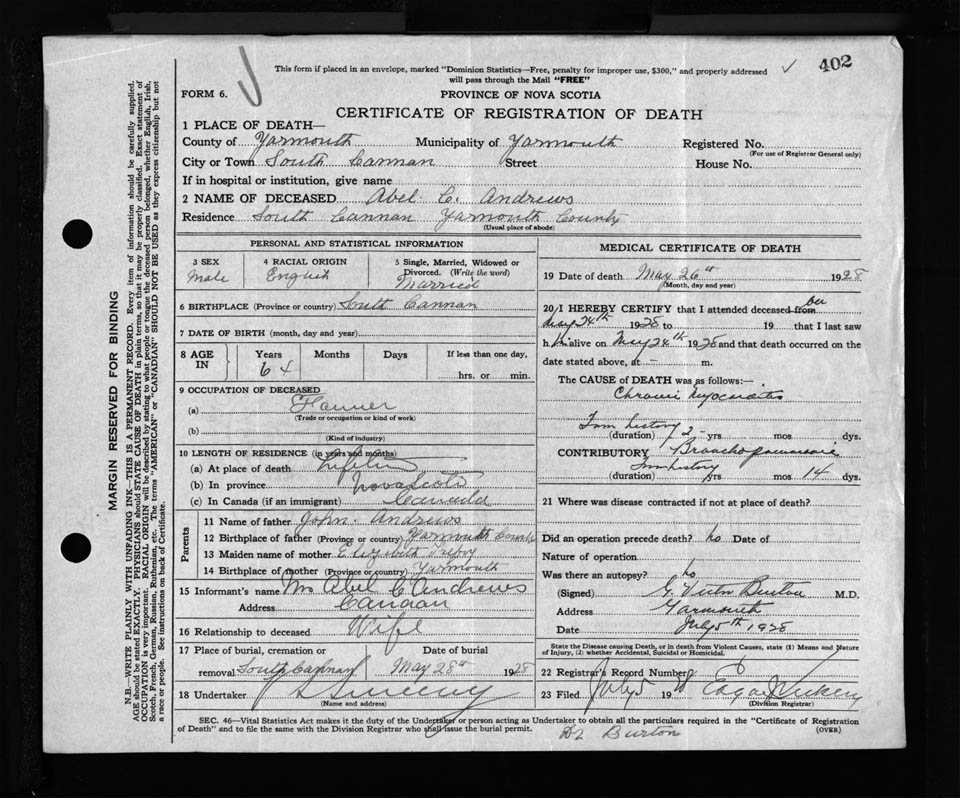 This form if placed in an envelope, marked "Dominion Statistics—Free, penalty for improper use, $300," and properly addressed
402
will pass through the Mail "FREE"
FORM 6.
PROVINCE OF NOVA SCOTIA
CERTIFICATE OF REGISTRATION OF DEATH
1 PLACE OF DEATH—
County of Yarmouth Municipality of Yarmouth Registered No.
(For use of Registrar General only)
City or Town South Cannan Street House No.
If in hospital or institution, give name
2 NAME OF DECEASED Abel C. Andrews
Residence South Cannan Yarmouth County
(Usual place of abode)
PERSONAL AND STATISTICAL INFORMATION
3 SEX
Male
4 RACIAL ORIGIN
English
5 Single, Married, Widowed or Divorced. (Write the word)
Married
6 BIRTHPLACE (Province or country) South Cannan
7 DATE OF BIRTH (month, day and year)
8 AGE IN
Years
64
Months
Days
If less than one day,
hrs. or min.
9 OCCUPATION OF DECEASED
(a) Farmer
(Trade or occupation or kind of work)
(b)
(Kind of industry)
10 LENGTH OF RESIDENCE (in years and months)
(a) At place of death Lifetime
(b) In province Nova Scotia
(c) In Canada (if an immigrant) Canada
Parents
11 Name of father John Andrews
12 Birthplace of father (Province or country) Yarmouth County
13 Maiden name of mother Elizabeth
14 Birthplace of mother (Province or country) Yarmouth
15 Informant's name Mrs Abel C Andrews
Address Canaan
16 Relationship to deceased Wife
17 Place of burial, cremation or removal South Cannan
Date of burial
May 28th 1928
18 Undertaker Sweeny
(Name and address)
MEDICAL CERTIFICATE OF DEATH
19 Date of death May 26th 1928
(Month, day and year)
20 I HEREBY CERTIFY that I attended deceased from on
May 24th 1928 to 19 that I last saw
him alive on May 24th 1928 and that death occurred on the
date stated above, at — m.
The CAUSE OF DEATH was as follows:—
Chronic Myocarditis
From history
(duration) 2 yrs mos dys.
CONTRIBUTORY Bronchopneumonia
From history
(duration) yrs mos 14 dys.
21 Where was disease contracted if not at place of death?
Did an operation precede death? No Date of
Nature of operation
Was there an autopsy? No
(Signed) G. Burton M.D.
Address Yarmouth
Date July 5th 1928
State the Disease causing Death, or in death from Violent Causes, state (1) Means and Nature of Injury, (2) whether Accidental, Suicidal or Homicidal.
22 Registrar's Record Number
23 Filed July 5 19
(Division Registrar)
SEC. 46—Vital Statistics Act makes it the duty of the Undertaker or person acting as Undertaker to obtain all the particulars required in the "Certificate of Registration
of Death" and to file the same with the Division Registrar who shall issue the burial permit.
Dr Burton
(OVER)
MARGIN RESERVED FOR BINDING
N.B.—WRITE PLAINLY WITH UNFADING INK—THIS IS A PERMANENT RECORD. Every item of information should be carefully supplied.
AGE should be stated EXACTLY. PHYSICIANS should STATE CAUSE OF DEATH in plain terms, so that it may be properly classified. Exact statement of
OCCUPATION is very important. RACIAL ORIGIN will be described by stating to what people or tongue the deceased person belonged, whether English, Irish,
Scotch, French, German, Russian, Ruthenian, etc. The terms "AMERICAN" or "CANADIAN" SHOULD NOT BE USED as they express citizenship but not
a race or people. See instructions on back of Certificate.